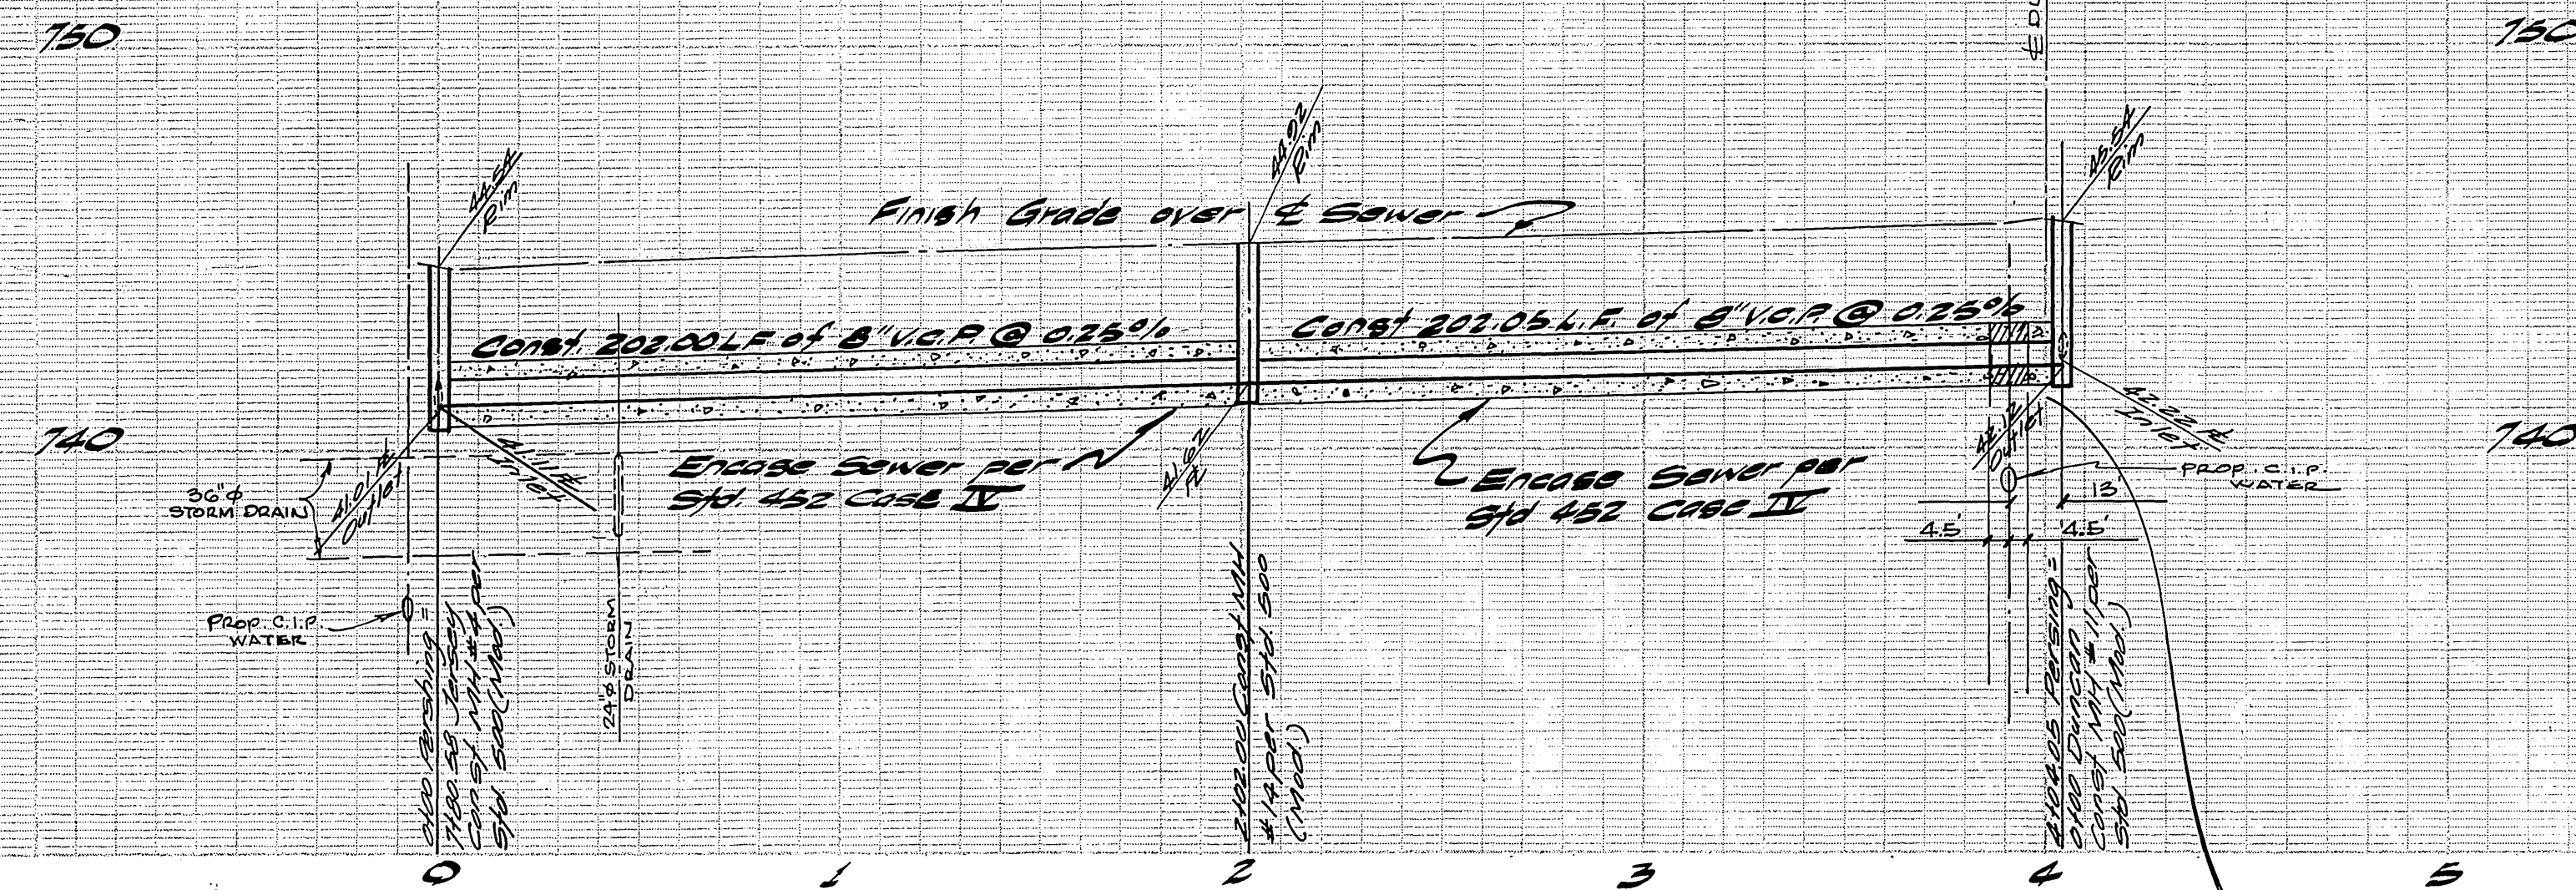 750
750
44.54
Rim
44.92
Rim
45.54
Rim
Finish Grade over ℄ Sewer
Const. 202.00 LF of 8" V.C.P. @ 0.25%
Const 202.05 L.F. of 8" V.C.P. @ 0.25%
740
740
36"φ
STORM DRAIN
41.01
Outlet
41.11
Inlet
Encase Sewer per
Std. 452 Case IV
41.62
Encase Sewer per
Std 452 Case IV
42.12
Outlet
42.22
Inlet
PROP. C.I.P.
WATER
13'
4.5'
4.5'
PROP. C.I.P.
WATER
24"φ STORM
DRAIN
0+00 Pershing =
7+80.58 Jersey
Const MH #4 per
Std. 500 (Mod.)
2+02.00 Const MH
#14 per Std. 500
(Mod.)
4+04.05 Persing =
0+00 Duncan
Const MH #11 per
Std 500 (Mod.)
0
1
2
3
4
5